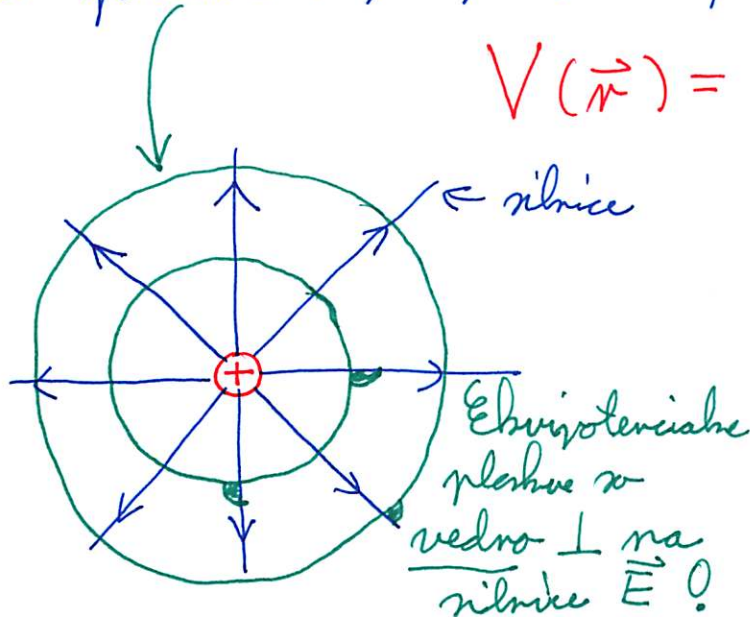 V(r⃗) =
← silnice
+
Ekvipotencialne
ploskve so
vedno ⊥ na
silnice E⃗ !